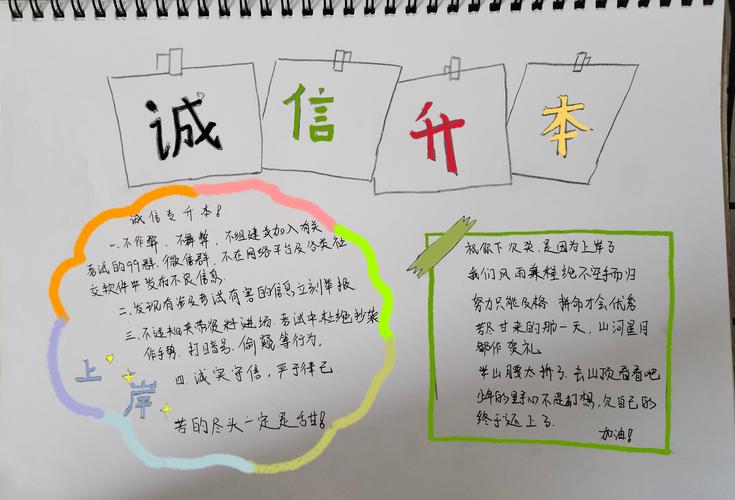 诚信升本
诚信专升本!
一.不作弊、不舞弊、不组建或加入有关
考试的QQ群、微信群、不在网络平台及各类社
交软件中发布不良信息.
二、发现有涉及考试有害的信息立刻举报.
三.不违相关带资料进场.考试中杜绝抄袭
作手势、打暗号、偷窥等行为.
四.诚实守信,严于律己.
上岸
苦的尽头一定是甜!
祝你下次哭.是因为上岸了
我们风雨兼程绝不空手而归
努力只能及格 拼命才会优秀
苦尽甘来的那一天,山河星月
都作贺礼
半山腰太挤了.去山顶看看吧
少年的野心不是幻想,欠自己的
终于还上了.
加油!